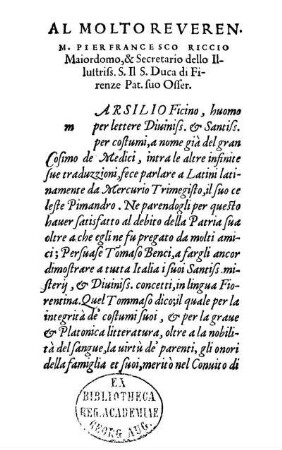 AL MOLTO REVEREN.
M. PIERFRANCESCO RICCIO
Maiordomo, & Secretario dello Il-
lustriss. S. Il S. Duca di Fi-
renze Pat. suo Osser.
m
ARSILIO Ficino, huomo
per lettere Diuiniss. & Santiss.
per costumi, a nome già del gran
Cosimo de Medici, intra le altre infinite
sue traduzzioni, fece parlare a Latini lati-
namente da Mercurio Trimegisto, il suo ce
leste Pimandro. Ne parendogli per questo
hauer satisfatto al debito della Patria sua
oltre a che egli ne fu pregato da molti ami-
ci; Persuase Tomaso Benci, a fargli ancor
dimostrare a tutta Italia i suoi Santiss. mi-
sterij, & Diuiniss. concetti, in lingua Fio-
rentina. Quel Tommaso dico, il quale per la
integrità de' costumi suoi, & per la graue
& Platonica litteratura, oltre a la nobili-
tà del sangue, la uirtù de' parenti, gli onori
della famiglia et suoi, meritò nel Conuito di
EX
BIBLIOTHECA
REG. ACADEMIAE
GEORG. AUG.